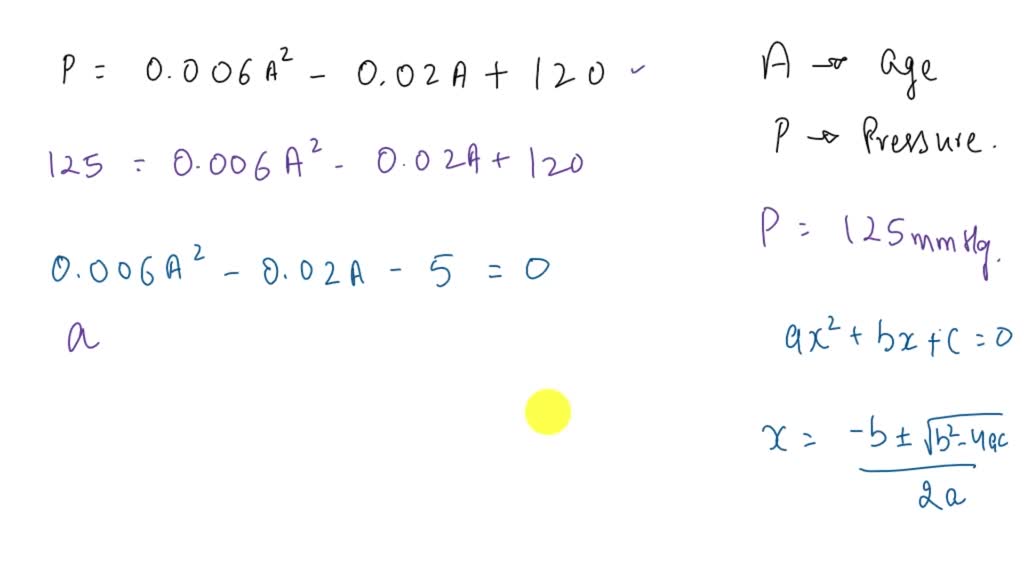 P = 0.006A² - 0.02A + 120 ✓
125 = 0.006A² - 0.02A + 120
0.006A² - 0.02A - 5 = 0
a
A → Age
P → Pressure.
P = 125mmHg.
ax² + bx + c = 0
x = -b ± √b²-4ac
2a